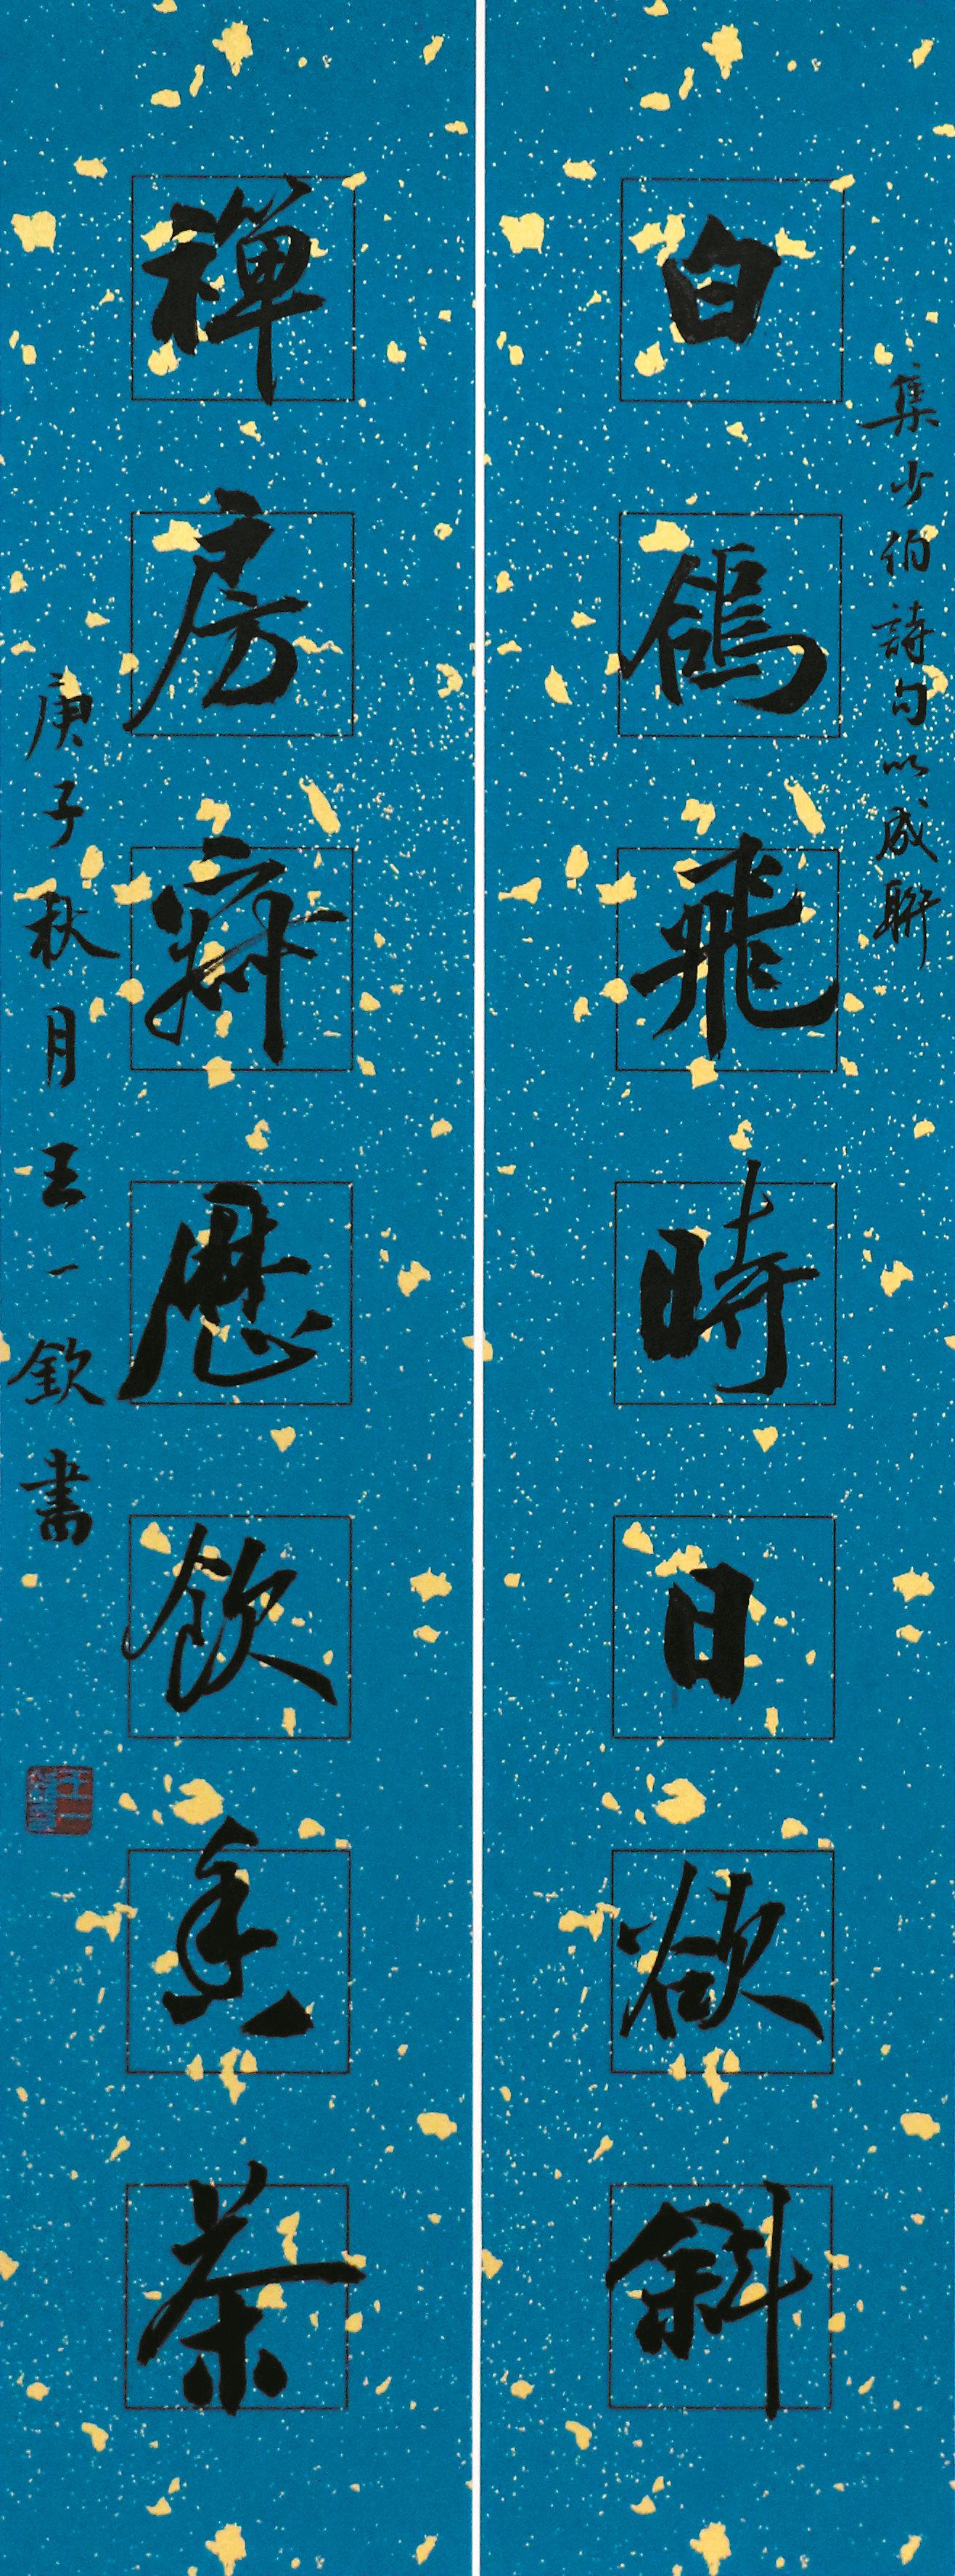 集少伯詩句以成聯
白鴿飛時日欲斜
禪房寂歷飲香茶
庚子秋月王一欽書